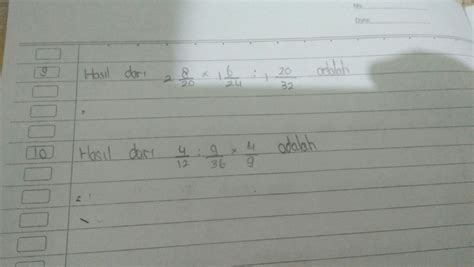 No.
Date
9 Hasil dari 2 8/20 × 1 6/24 : 1 20/32 adalah
10 Hasil dari 4/12 : 9/36 × 4/9 adalah